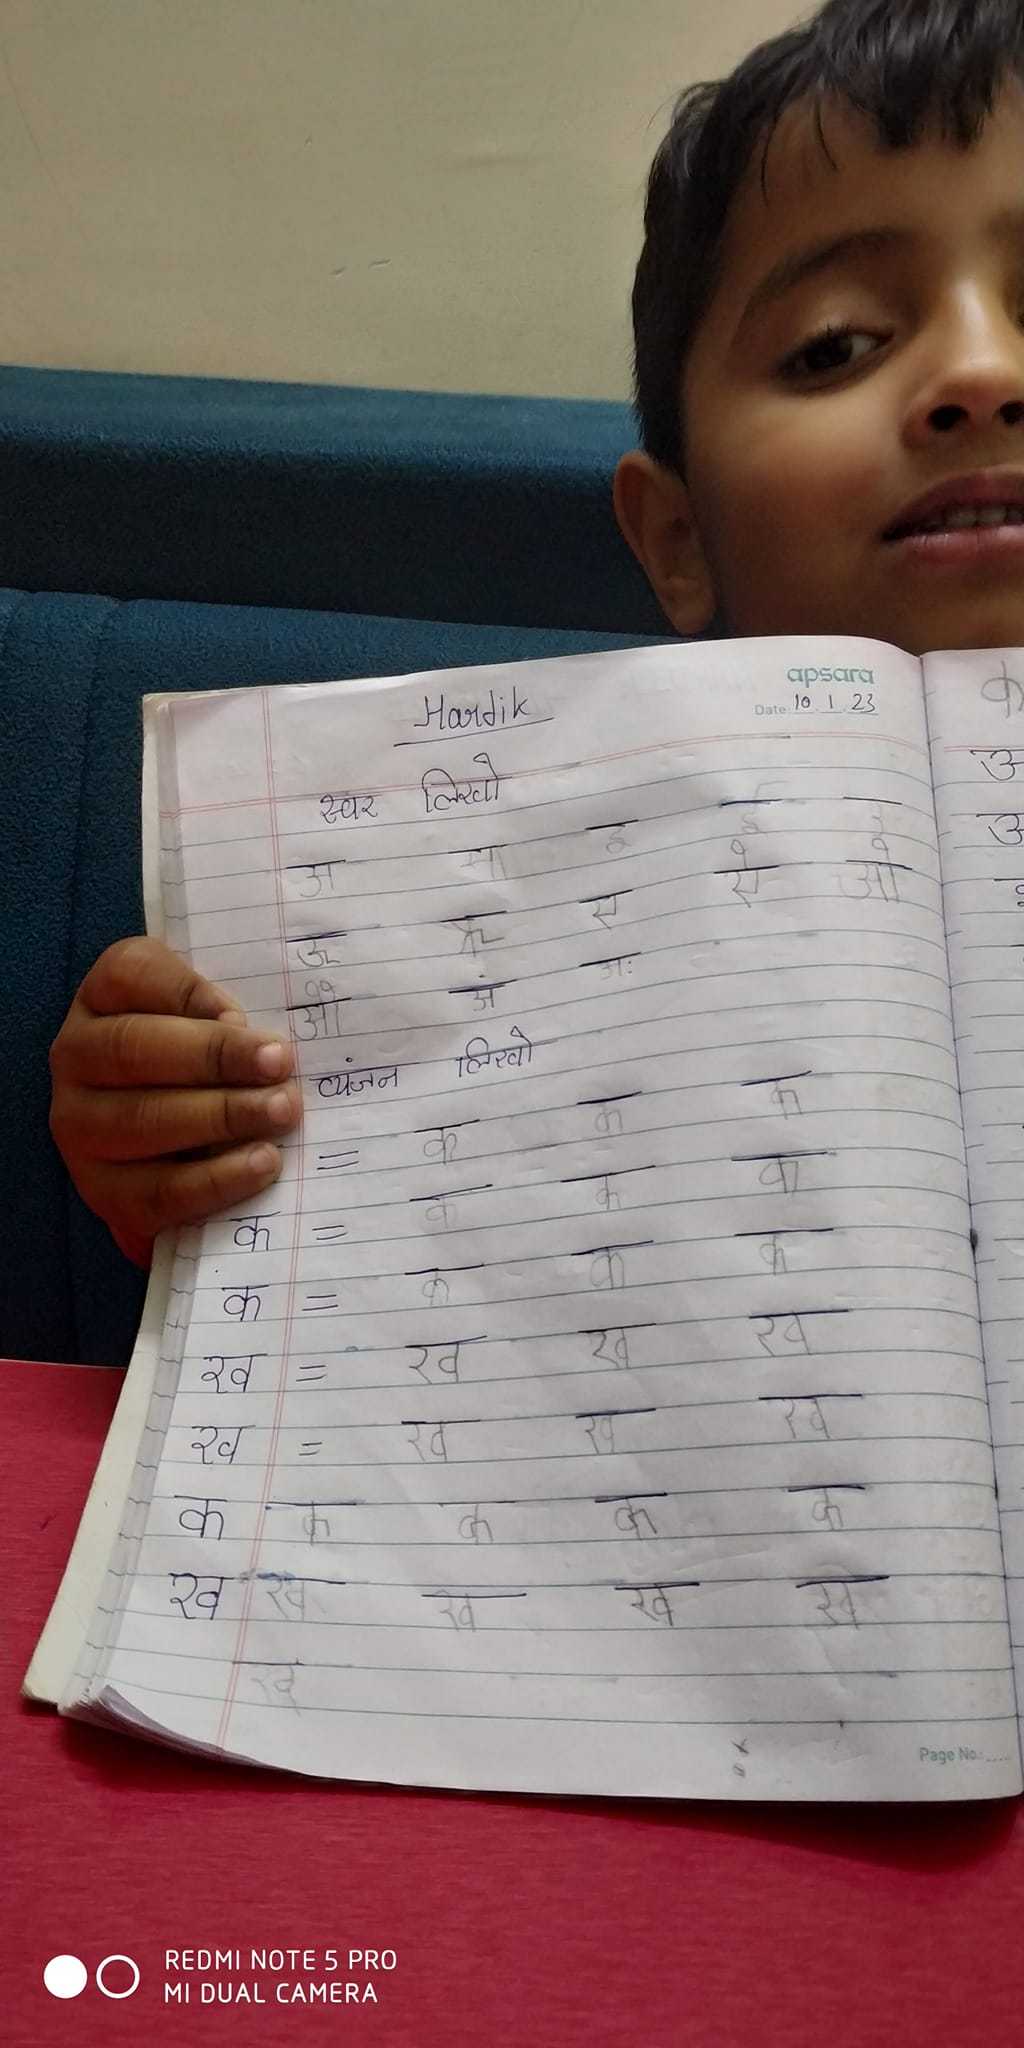 apsara
Hardik
Date: 10.1.23
स्वर लिखो
अ आ इ ई उ
ऊ ऋ ए ऐ ओ
औ अं अः
व्यंजन लिखो
= क क क
क = क क क
क = क क क
ख = ख ख ख
ख = ख ख ख
क क क क क
ख ख ख ख ख
ख
Page No.:
REDMI NOTE 5 PRO
MI DUAL CAMERA